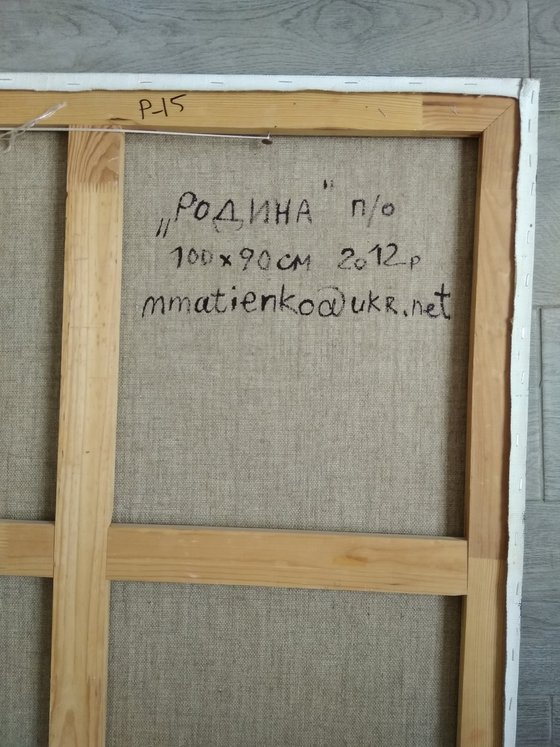 P-15
„РОДИНА" п/о
100×90см 2012р
mmatienko@ukr.net